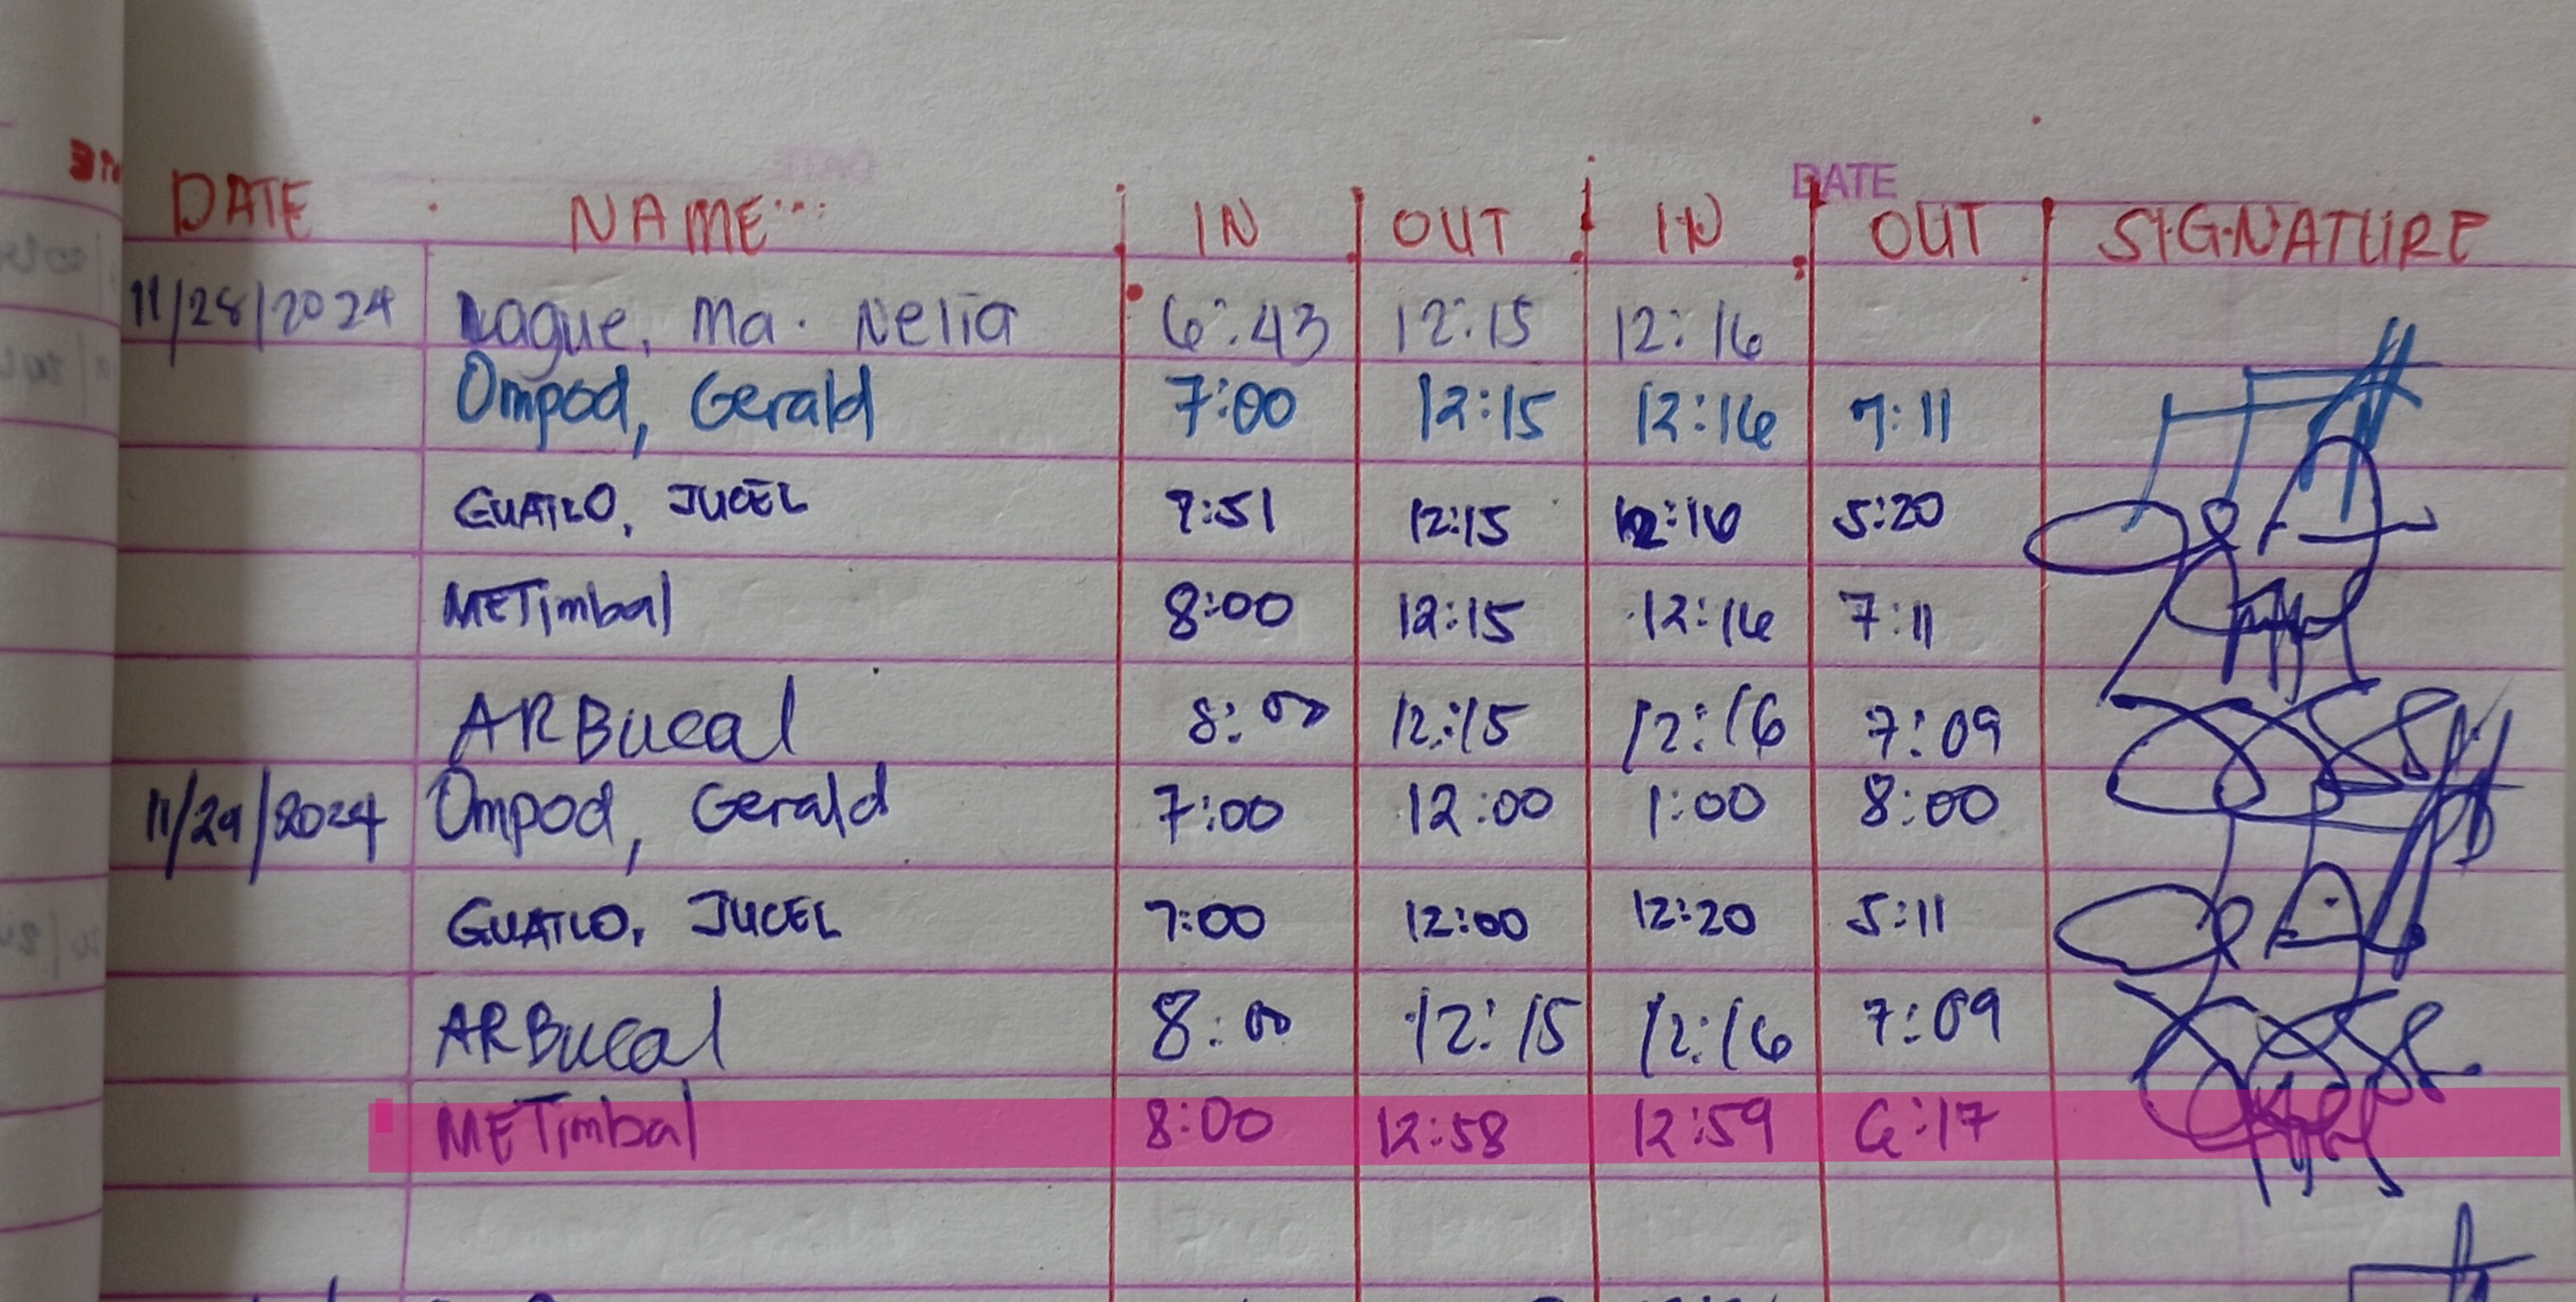 DATE
DATE NAME IN OUT IN OUT SIGNATURE
11/28/2024 Lague, Ma. Nelia 6:43 12:15 12:16
Ompod, Gerald 7:00 12:15 12:16 7:11
GUATLO, JUCEL 7:51 12:15 12:16 5:20
METimbal 8:00 12:15 12:16 7:11
ARBucal 8:00 12:15 12:16 7:09
11/29/2024 Ompod, Gerald 7:00 12:00 1:00 8:00
GUATLO, JUCEL 7:00 12:00 12:20 5:11
ARBucal 8:00 12:15 12:16 7:09
METimbal 8:00 12:58 12:59 6:17